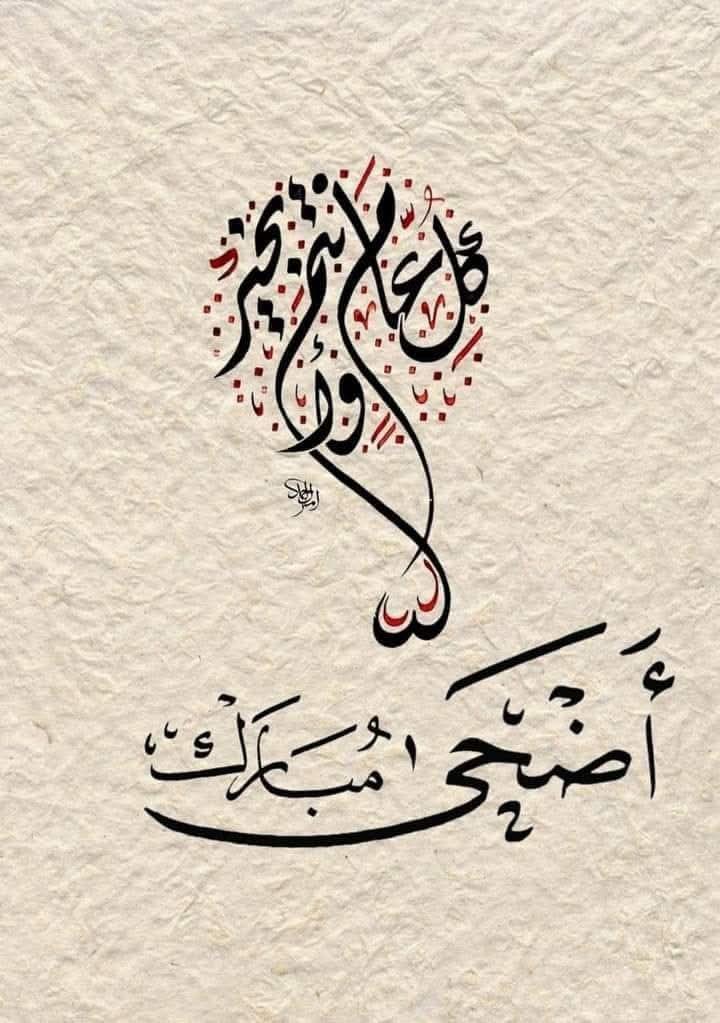 كل عام وأنتم بخير
أَضْحَى مُبَارَكْ